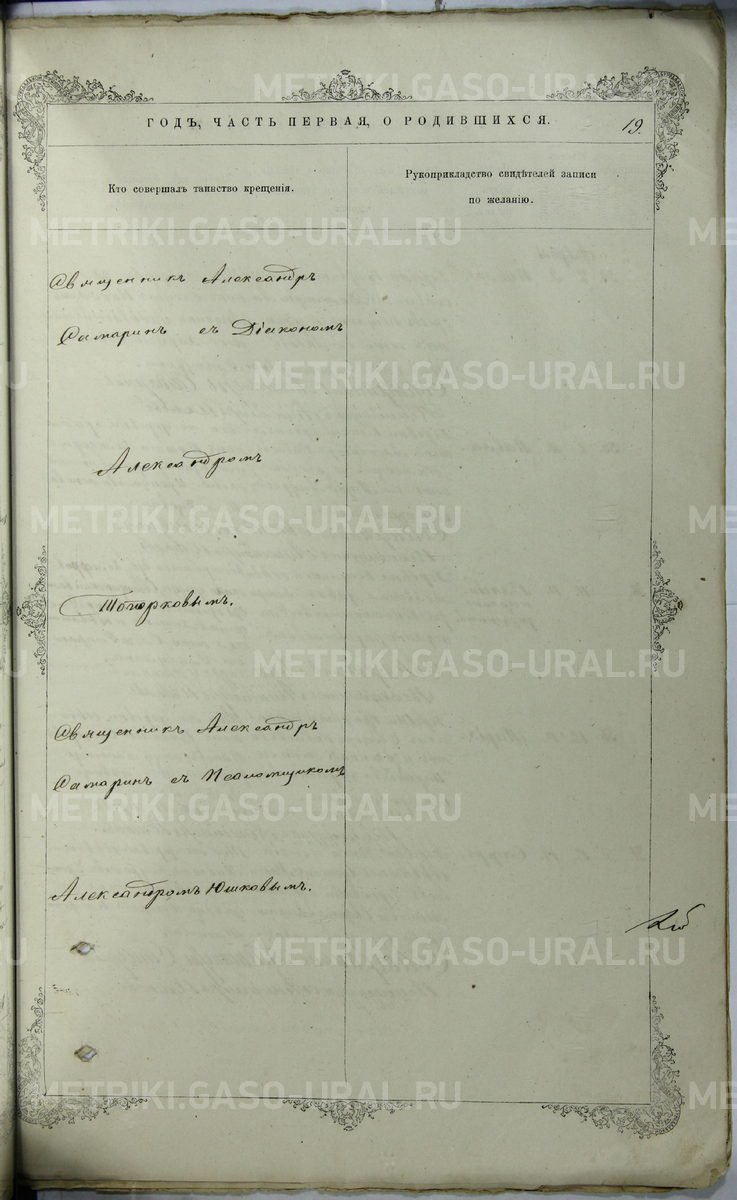 ГОДЪ, ЧАСТЬ ПЕРВАЯ, О РОДИВШИХСЯ.
19.
Кто совершалъ таинство крещенія.
Рукоприкладство свидѣтелей записи
по желанію.
Священникъ Александръ
Самаринъ съ Діакономъ
Александромъ
Топорковымъ.
Священникъ Александръ
Самаринъ съ Псаломщикомъ
Александромъ Юшковымъ.
METRIKI.GASO-URAL.RU